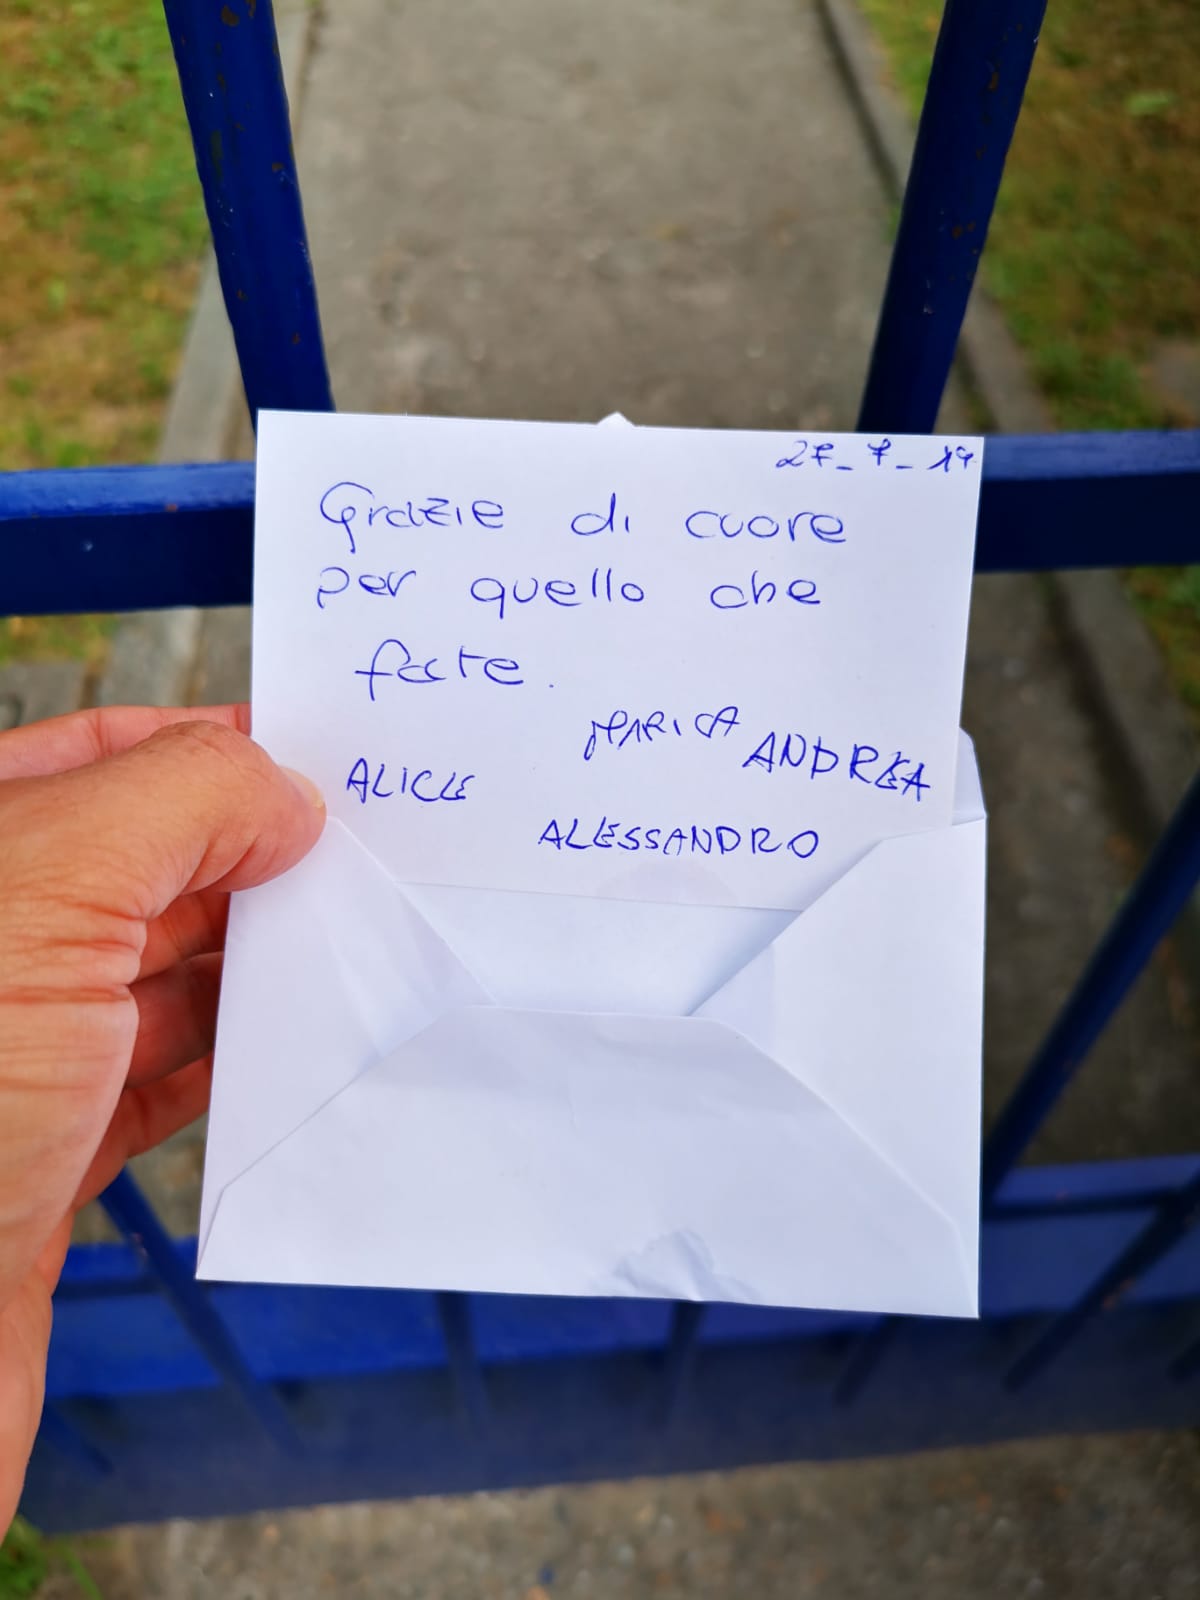 27-7-19
Grazie di cuore
per quello che
fate.
MARICA ANDREA
ALICE
ALESSANDRO